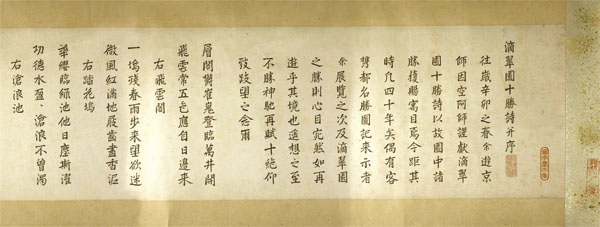 滴翠園十勝詩并序
往歳辛卯之春余遊京
師因空阿師謹獻滴翠
園十勝詩以故園中諸
勝復賜寓目焉今距其
時凡四十年矣偶有客
携都名勝圖記來示者
余展覽之次及滴翠園
之勝則心目宛然如再
遊乎其境也遥想之至
不勝神馳再賦十絶仰
致跂望之念爾
層閣欝崔嵬登臨萬井開
飛雲常五色應自日邊來
右飛雲閣
一塢殘春雨步來望欲迷
微風紅滿地屐齒盡香泥
右踏花塢
華纓臨綠池他日塵斯濯
功德水盈〻滄浪不曾濁
右滄浪池